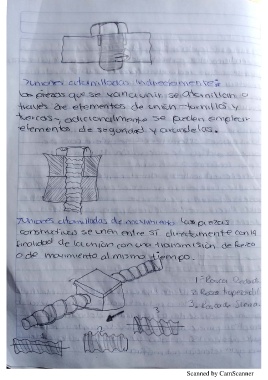 Uniones atornilladas indirectamente:
las piezas que se van a unir se atornillan a
través de elementos de unión tornillos y
tuercas, adicionalmente se pueden emplear
elementos de seguridad y arandelas.
Uniones atornilladas de movimiento las piezas
constructivas se unen entre sí directamente con la
finalidad de la unión con una transmisión de fuerza
o de movimiento al mismo tiempo.
1- Rosca
2 Rosca trapezoidal
3 Rosca de Sierra
Scanned by CamScanner